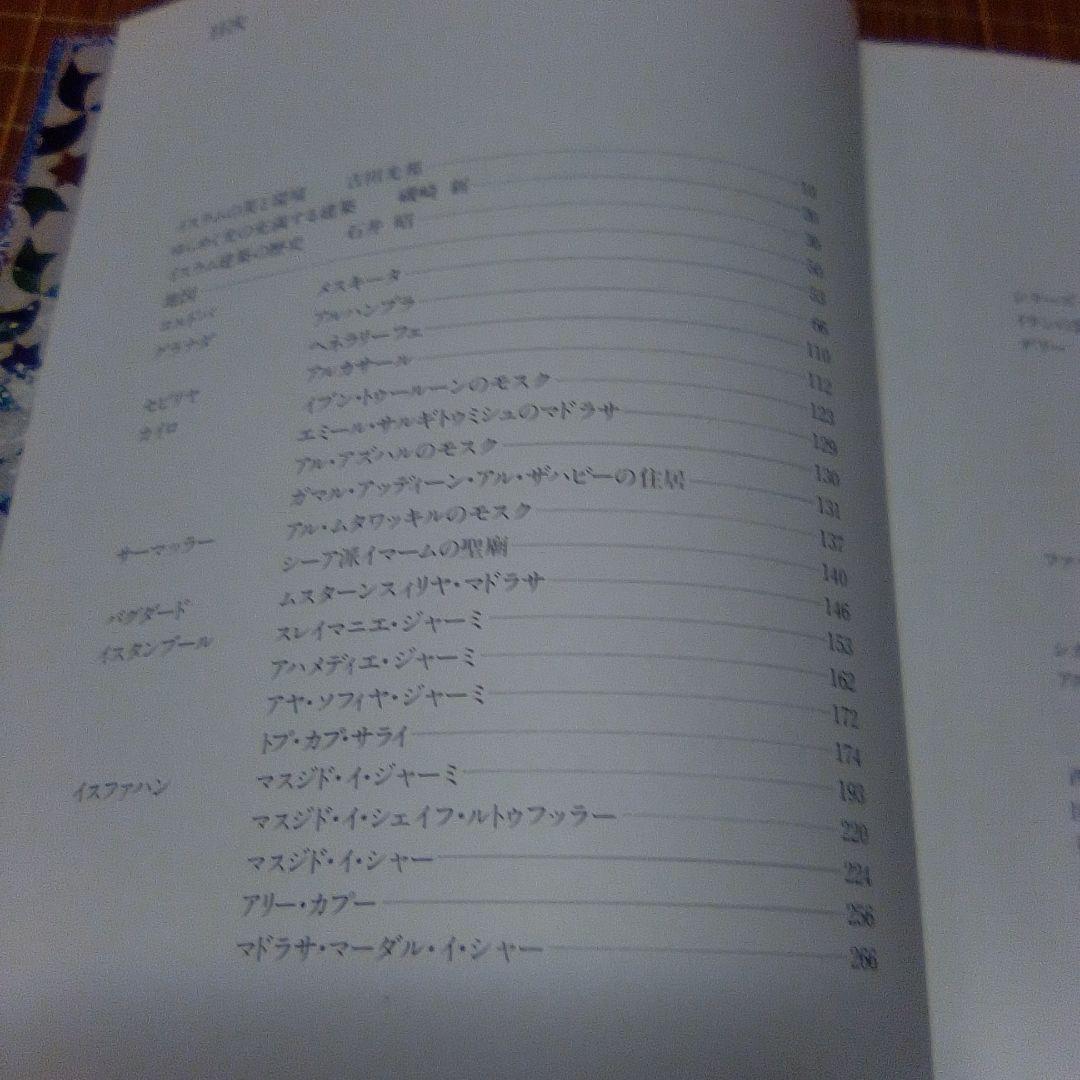 目次
イスラムの美と環境 吉田光邦 10
建築 磯崎 新 20
イスラム建築の歴史 石井 昭 36
地図 50
コルドバ メスキータ 53
グラナダ アルハンブラ 66
ヘネラリーフェ 110
セビリヤ アルカサール 112
カイロ イブン・トゥールーンのモスク 123
エミール・サルギトゥミシュのマドラサ 129
アル・アズハルのモスク 130
ガマル・アッディーン・アル・ザハビーの住居 131
サーマッラー アル・ムタワッキルのモスク 137
シーア派イマームの聖廟 140
バグダード ムスターンスィリヤ・マドラサ 146
イスタンブール スレイマニエ・ジャーミ 153
アハメディエ・ジャーミ 162
アヤ・ソフィヤ・ジャーミ 172
トプ・カプ・サライ 174
イスファハン マスジド・イ・ジャーミ 193
マスジド・イ・シェイフ・ルトゥフッラー 220
マスジド・イ・シャー 224
アリー・カプー 256
マドラサ・マーダル・イ・シャー 266
シラーズ
デリー